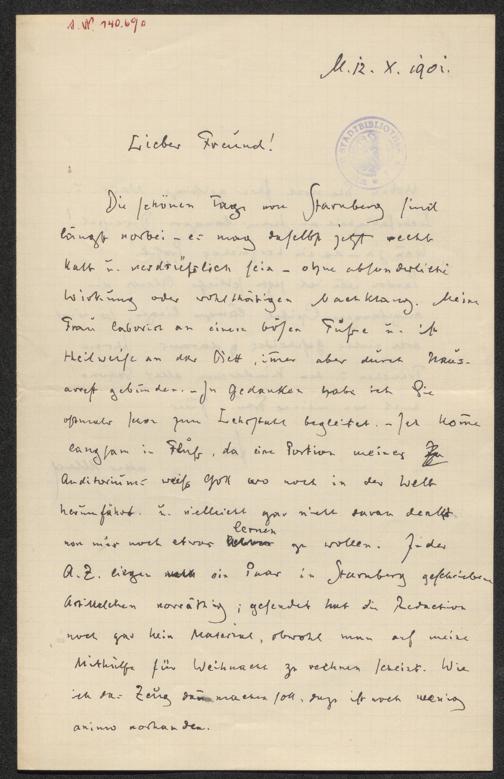 A.N. 140.690
M. 12. X. 1901.
STADTBIBLIOTHEK
Lieber Freund!
Die schönen Tage von Starnberg sind
längst vorbei – es mag daselbst jetzt recht
kalt u. verdrießlich sein – ohne absonderliche
Wirkung oder wohlthätigen Nachklang. Meine
Frau laborirt an einem bösen Fuße u. ist
theilweise an das Bett, im̄er aber durch Haus-
arrest gebunden. – In Gedanken habe ich Sie
oftmals schon zum Lehrstuhl begleitet. – Ich kom̄e
langsam in Fluß, da eine Portion meines
Auditoriums weiß Gott wo noch in der Welt
herumfährt u. vielleicht gar nicht daran denkt
von mir noch etwas lernen zu wollen. In der
A.Z. liegen ein Paar in Starnberg geschriebene
Artikelchen vorräthig; gesendet hat die Redaction
noch gar kein Material, obwohl man auf meine
Mithülfe für Weihnacht zu rechnen scheint. Wie
ich das Zeug dann machen soll, dazu ist noch wenig
animo vorhanden.